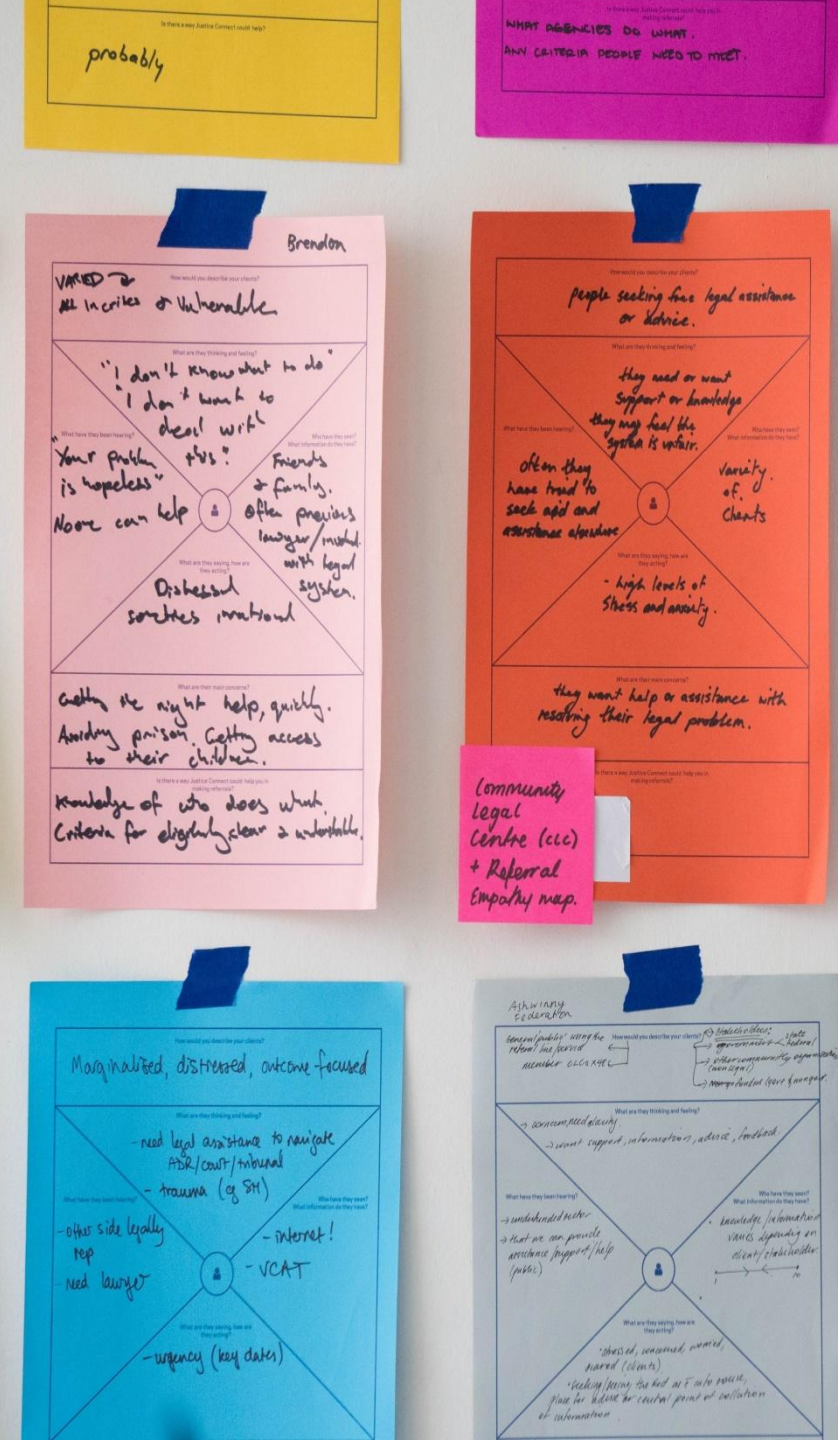 Is there a way Justice Connect could help?
probably
Is there a way Justice Connect could help you in
making referrals?
WHAT AGENCIES DO WHAT.
ANY CRITERIA PEOPLE NEED TO MEET.
Brendon
How would you describe your clients?
VARIED
All in crises & Vulnerable
What are they thinking and feeling?
"I don't know what to do"
"I don't want to
deal with
this"
What have they been hearing?
"Your problem
is hopeless"
Noone can help
Who have they seen?
What information do they have?
Friends
& family.
Often previous
lawyer/
with legal
system.
What are they saying, how are
they acting?
Distressed
sometimes irrational
What are their main concerns?
Getting the right help, quickly.
Avoiding prison. Getting access
to their children.
Is there a way Justice Connect could help you in
making referrals?
Knowledge of who does what.
Criteria for eligibility clear & understandable.
How would you describe your clients?
people seeking free legal assistance
or advice.
What are they thinking and feeling?
they need or want
support or knowledge
they may feel the
system is unfair.
What have they been hearing?
often they
have tried to
seek aid and
assistance elsewhere
Who have they seen?
What information do they have?
variety
of
clients
What are they saying, how are
they acting?
- high levels of
stress and anxiety.
What are their main concerns?
they want help or assistance with
resolving their legal problem.
is there a way Justice Connect could help you in
making referrals?
Community
Legal
Centre (CLC)
+ Referral
Empathy map.
How would you describe your clients?
Marginalised, distressed, outcome focused
What are they thinking and feeling?
- need legal assistance to navigate
ADR/court/tribunal
- trauma (eg SH)
What have they been hearing?
- other side legally
rep
- need lawyer
Who have they seen?
What information do they have?
- internet!
- VCAT
What are they saying, how are
they acting?
- urgency (key dates)
Ashwinny
Federation
How would you describe your clients?
General/public using the
referral line/service
member CLCs
Stakeholders:
government
state
federal
other community organisations
(non legal)
What are they thinking and feeling?
→ concern, need clarity
→ want support, information, advice, feedback.
What have they been hearing?
→ underfunded sector
→ that we can provide
assistance/support/help
(public)
Who have they seen?
What information do they have?
• knowledge/information
varies depending on
client/stakeholder.
1 10
What are they saying, how are
they acting?
• stressed, concerned, worried,
scared (clients)
• seeking/seeing the Fed as
place for advice or central point of collation
of information